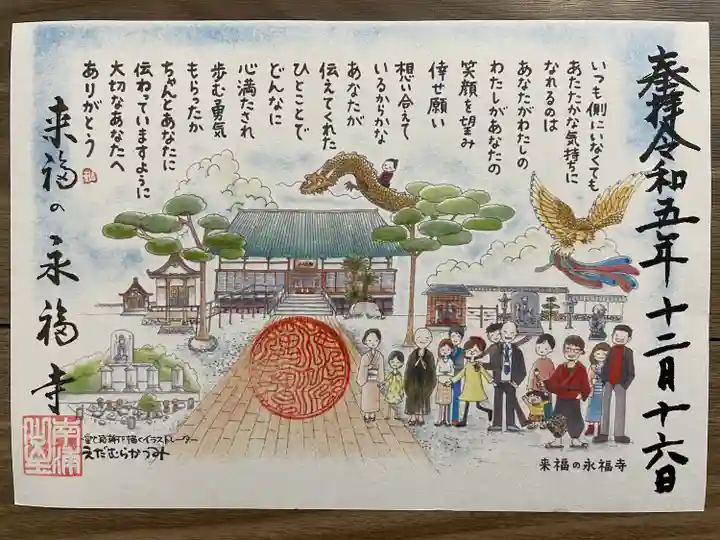 奉拝令和五年十二月十六日
いつも側にいなくても
あたたかな気持ちに
なれるのは
あなたがわたしの
わたしがあなたの
笑顔を望み
倖せ願い
想い合えて
いるからかな
あなたが
伝えてくれた
ひとことで
どんなに
心満たされ
歩む勇気
もらったか
ちゃんとあなたに
伝わっていますように
大切なあなたへ
ありがとう
来福の永福寺
えだむらかつみ
来福の永福寺